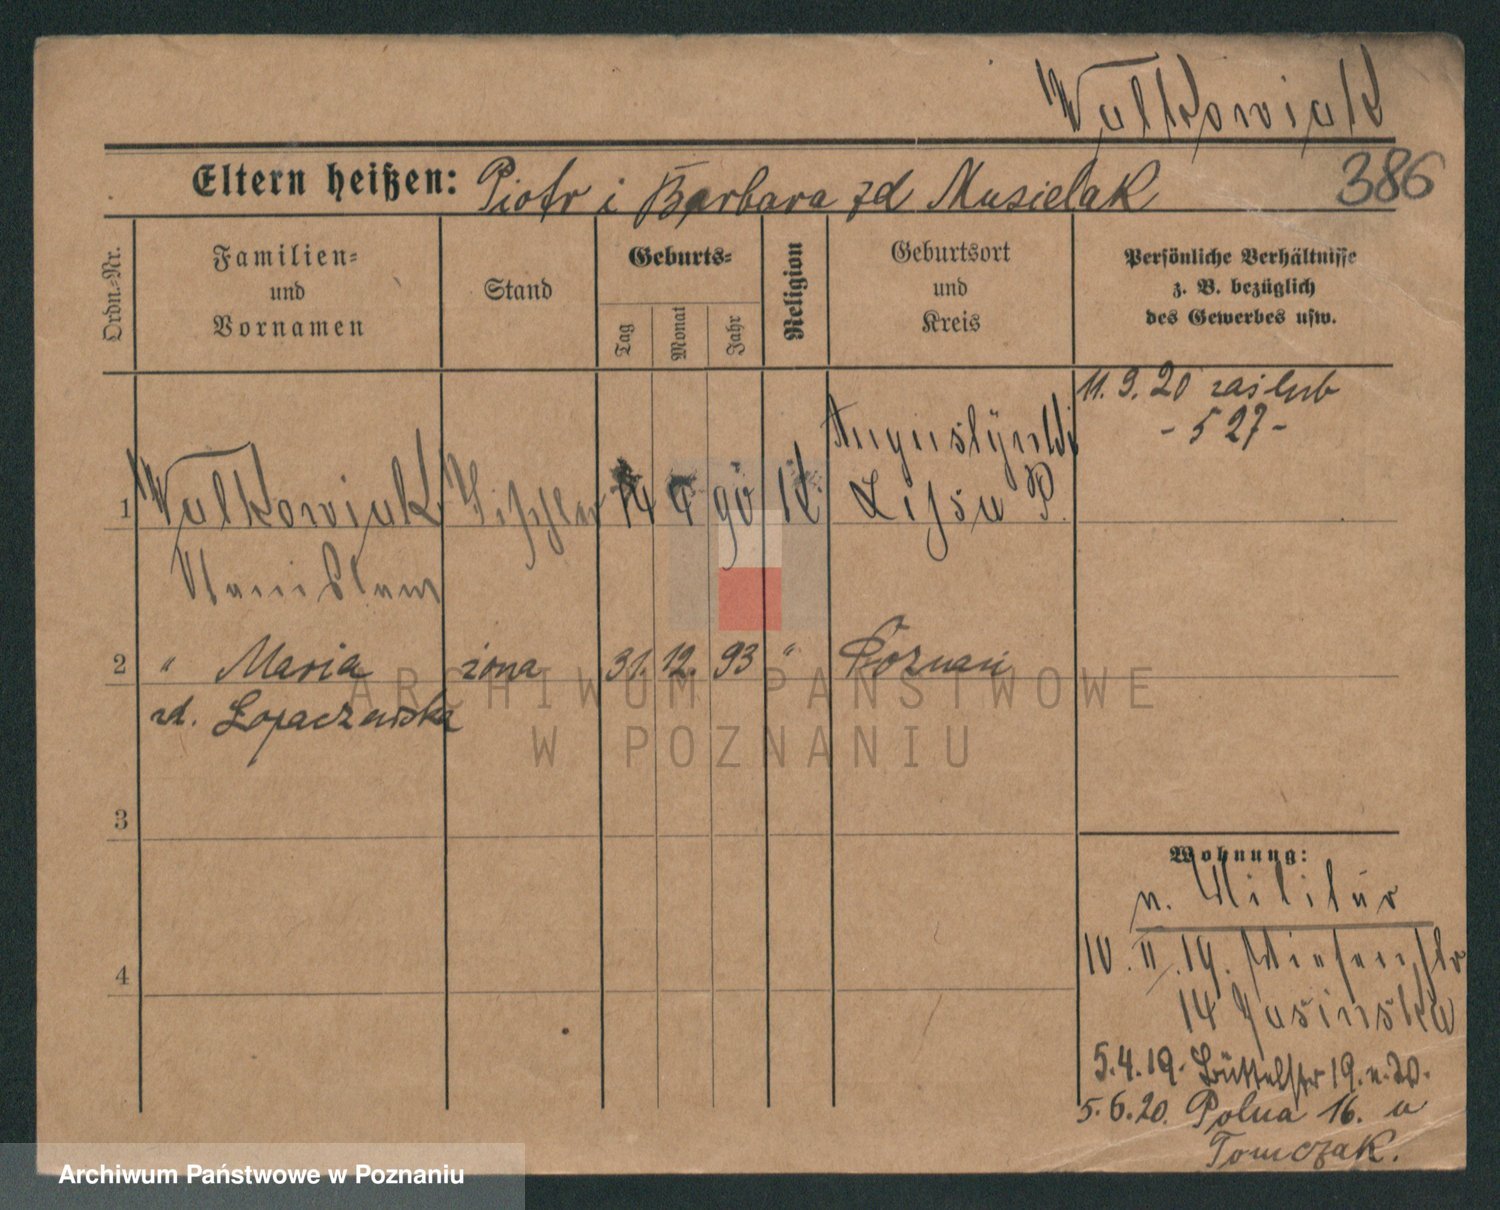 Walkowiak
Eltern heißen: Piotr i Barbara zd Musielak
386
Ordn.-Nr.
Familien-
und
Vornamen
Stand
Geburts-
Tag
Monat
Jahr
Religion
Geburtsort
und
Kreis
Persönliche Verhältnisse
z. B. bezüglich
des Gewerbes usw.
11. 9. 20 zaślub
- 527 -
1 Walkowiak Tischler 14 4 90 K. Augustynki
Lissa P.
Stanislaus
2 " Maria żona 31. 12. 93 " Poznań
zd. Łopaczewska
3
4
Wohnung:
n. Militär
10. II. 19. Wiesenstr
14 Jasinska
5.4.19. Büttelstr 19. n. 20.
5.6.20. Polna 16. u
Tomczak.
ARCHIWUM PAŃSTWOWE
W POZNANIU
Archiwum Państwowe w Poznaniu